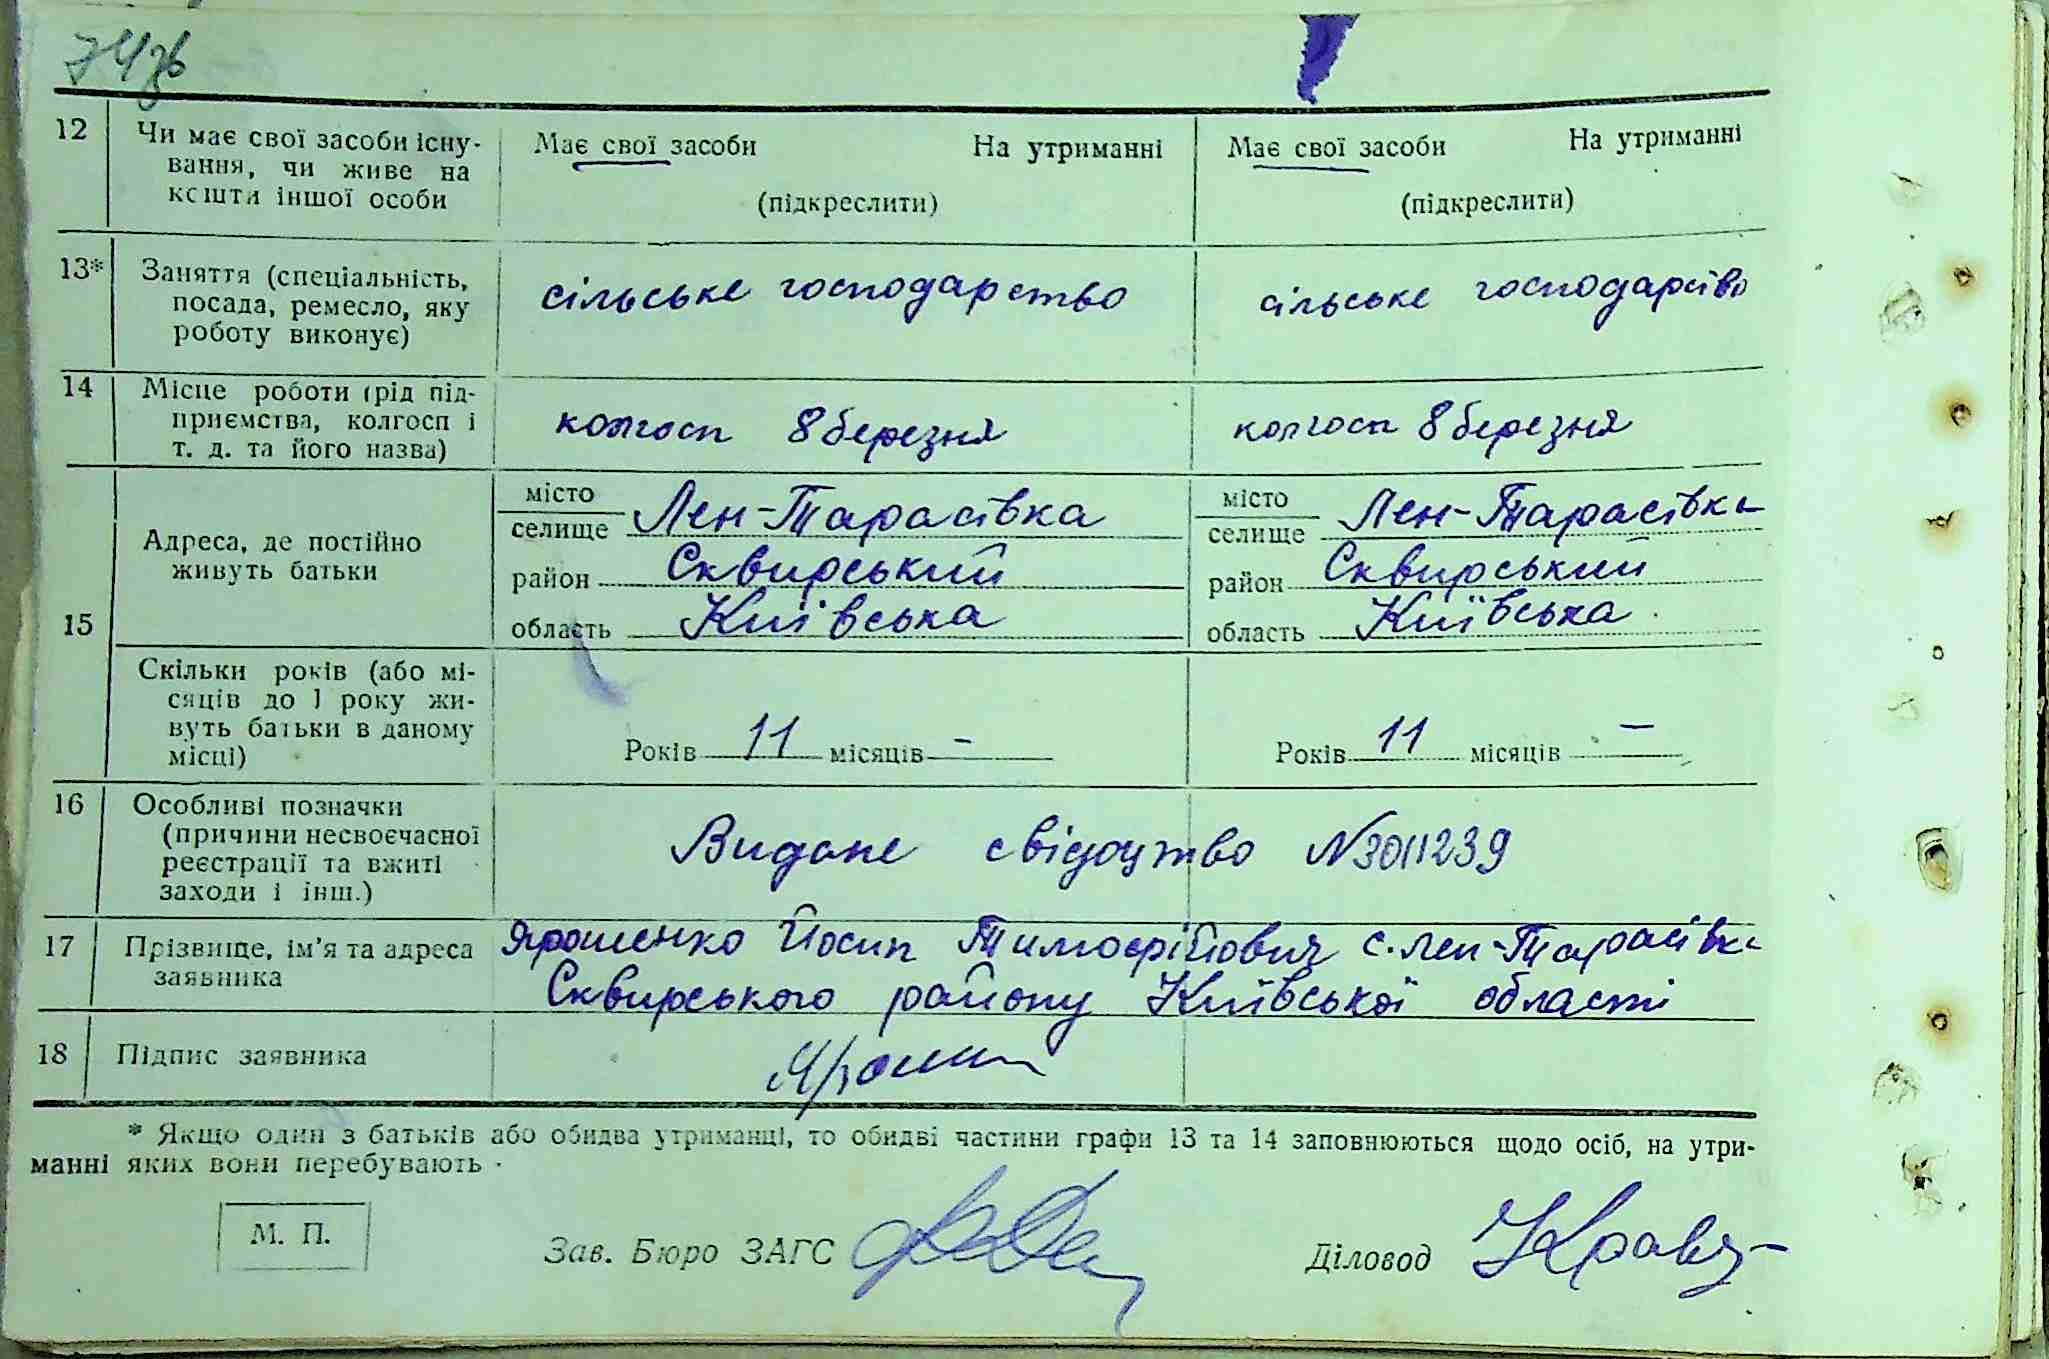 12 Чи має свої засоби існу- Має свої засоби На утриманні Має свої засоби На утриманні
вання, чи живе на
кошти іншої особи (підкреслити) (підкреслити)
13* Заняття (спеціальність, сільське господарство сільське господарство
посада, ремесло, яку
роботу виконує)
14 Місце роботи (рід під-
приємства, колгосп і колгосп 8 березня колгосп 8 березня
т. д. та його назва)
місто місто
Адреса, де постійно селище Лен-Тарасівка селище Лен-Тарасівка
живуть батьки район Сквирський район Сквирський
15 область Київська область Київська
Скільки років (або мі-
сяців до 1 року жи-
вуть батьки в даному Років 11 місяців - Років 11 місяців -
місці)
16 Особливі позначки
(причини несвоєчасної Видане свідоцтво N3011239
реєстрації та вжиті
заходи і інш.)
17 Прізвище, ім'я та адреса Ярошенко Йосип Тимофійович с. Лен-Тарасівка
заявника Сквирського району Київської області
18 Підпис заявника
* Якщо один з батьків або обидва утриманці, то обидві частини графи 13 та 14 заповнюються щодо осіб, на утри-
манні яких вони перебувають.
М. П. Зав. Бюро ЗАГС Діловод